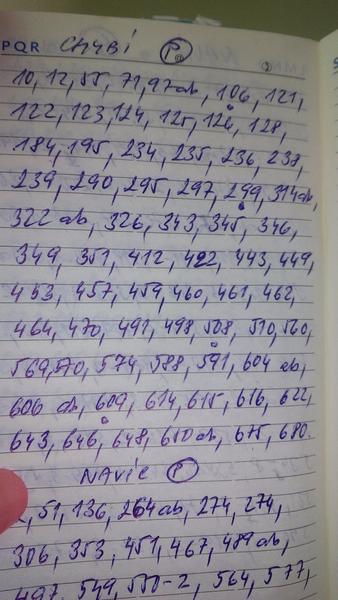 PQR CHYBÍ P
10, 12, 55, 71, 97ab, 106, 121,
122, 123, 124, 125, 126, 128,
184, 195, 234, 235, 236, 237,
239, 290, 295, 297, 299, 314ab,
322 ab, 326, 343, 345, 346,
349, 351, 412, 422, 443, 449,
453, 457, 459, 460, 461, 462,
464, 470, 491, 498, 508, 510, 560,
569, 570, 574, 588, 591, 604 ab,
606 ab, 609, 614, 615, 616, 622,
643, 646, 648, 650ab, 675, 680.
NAVÍC P
51, 136, 264ab, 274, 274,
306, 353, 451, 467, 489ab,
497, 549, 550-2, 564, 577,